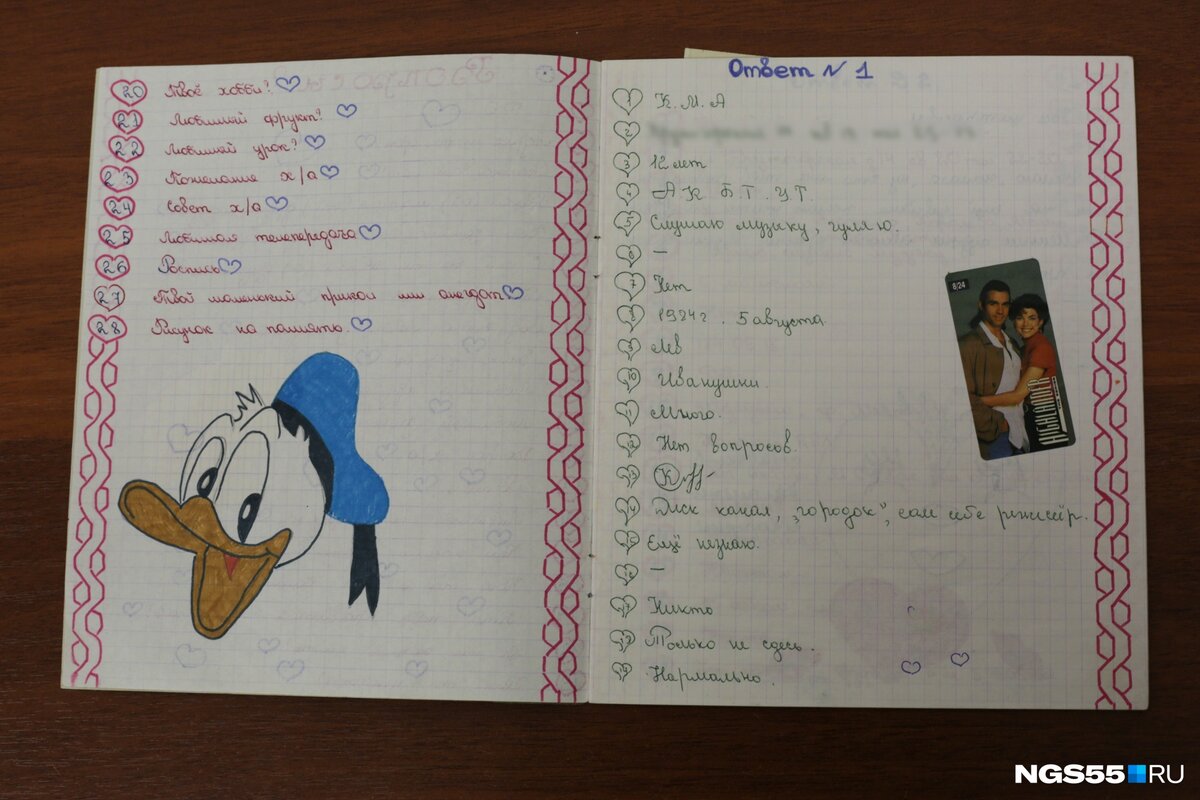 20 Твоё хобби?
21 Любимый фрукт?
22 Любимый урок?
23 Пожелания х/а
24 Совет х/а
25 Любимая телепередача
26 Роспись
27 Твой маленький прикол или анегдот
28 Рисунок на память.
Ответ N 1
1 К. М. А
2
3 12 лет
4 А К Б. Т. У. Т.
5 Слушаю музыку, гуляю.
6 —
7 Нет
8 1984 г. 5 августа.
9 Лев
10 Иванушки.
11 Много.
12 Нет вопросов.
13
14 Диск канал, „городок", сам себе режисёр.
15 Ещё незнаю.
16 —
17 Никто
18 Только не здесь.
19 Нармально.
8/24
HIGHLANDER
NGS55 RU